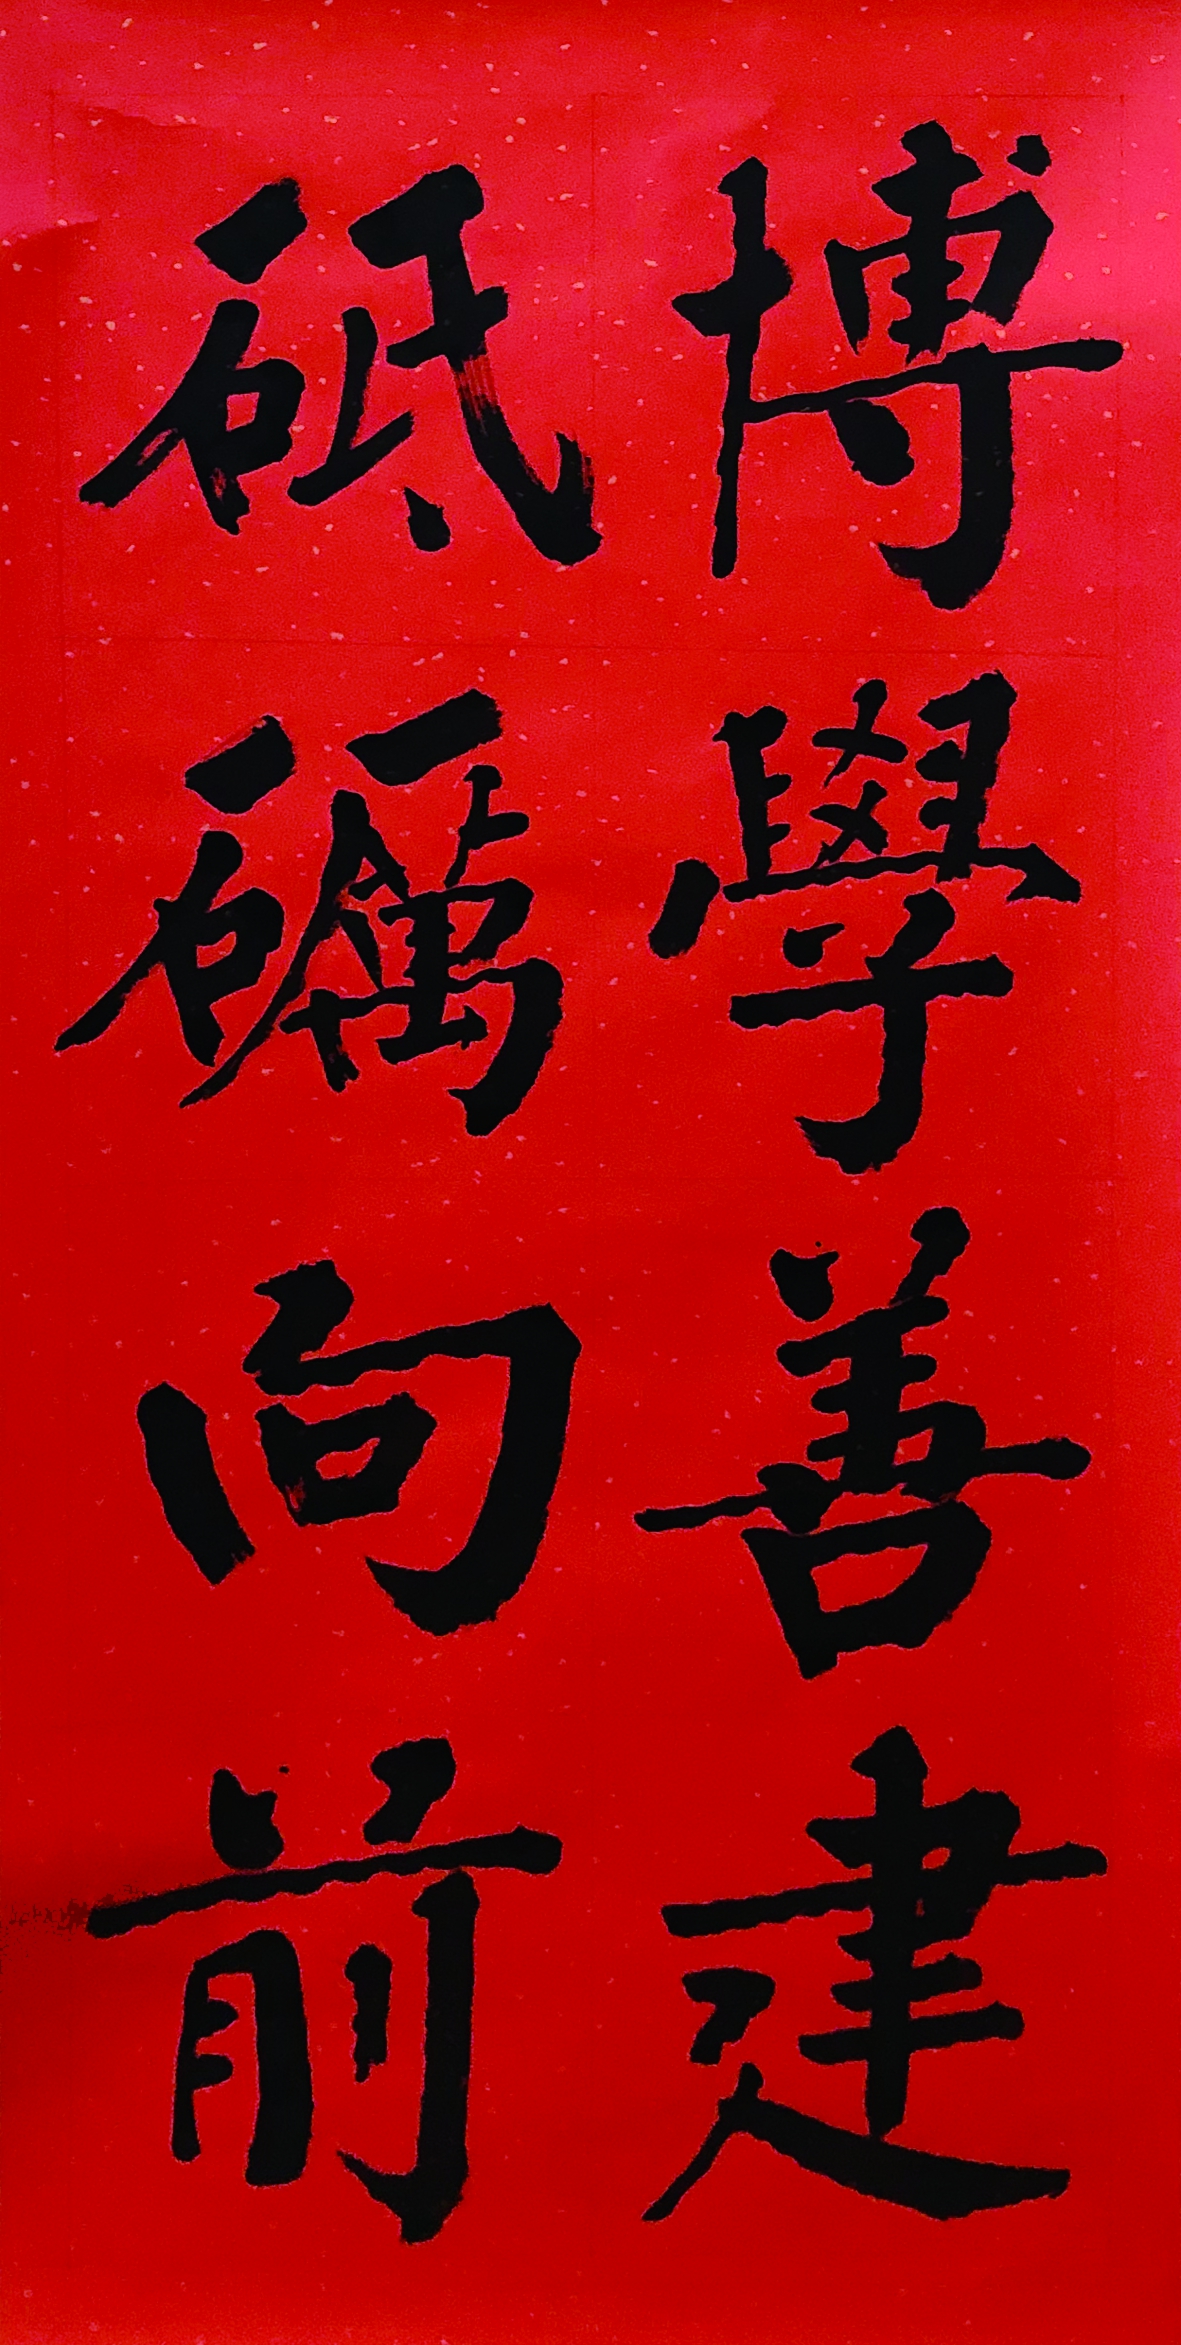 博學善建
砥礪向前